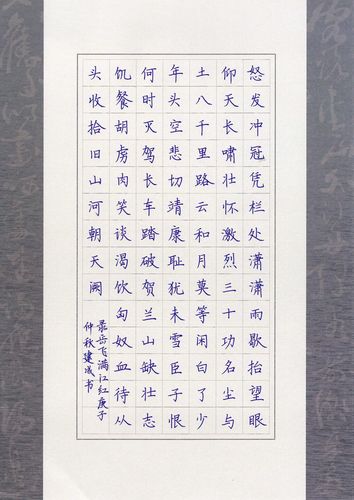 怒发冲冠凭栏处潇潇雨歇抬望眼
仰天长啸壮怀激烈三十功名尘与
土八千里路云和月莫等闲白了少
年头空悲切靖康耻犹未雪臣子恨
何时灭驾长车踏破贺兰山缺壮志
饥餐胡虏肉笑谈渴饮匈奴血待从
头收拾旧山河朝天阙
录岳飞满江红庚子
仲秋建成书